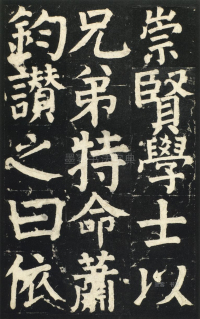 崇賢學士以
兄弟特命蕭
鈞讃之曰依